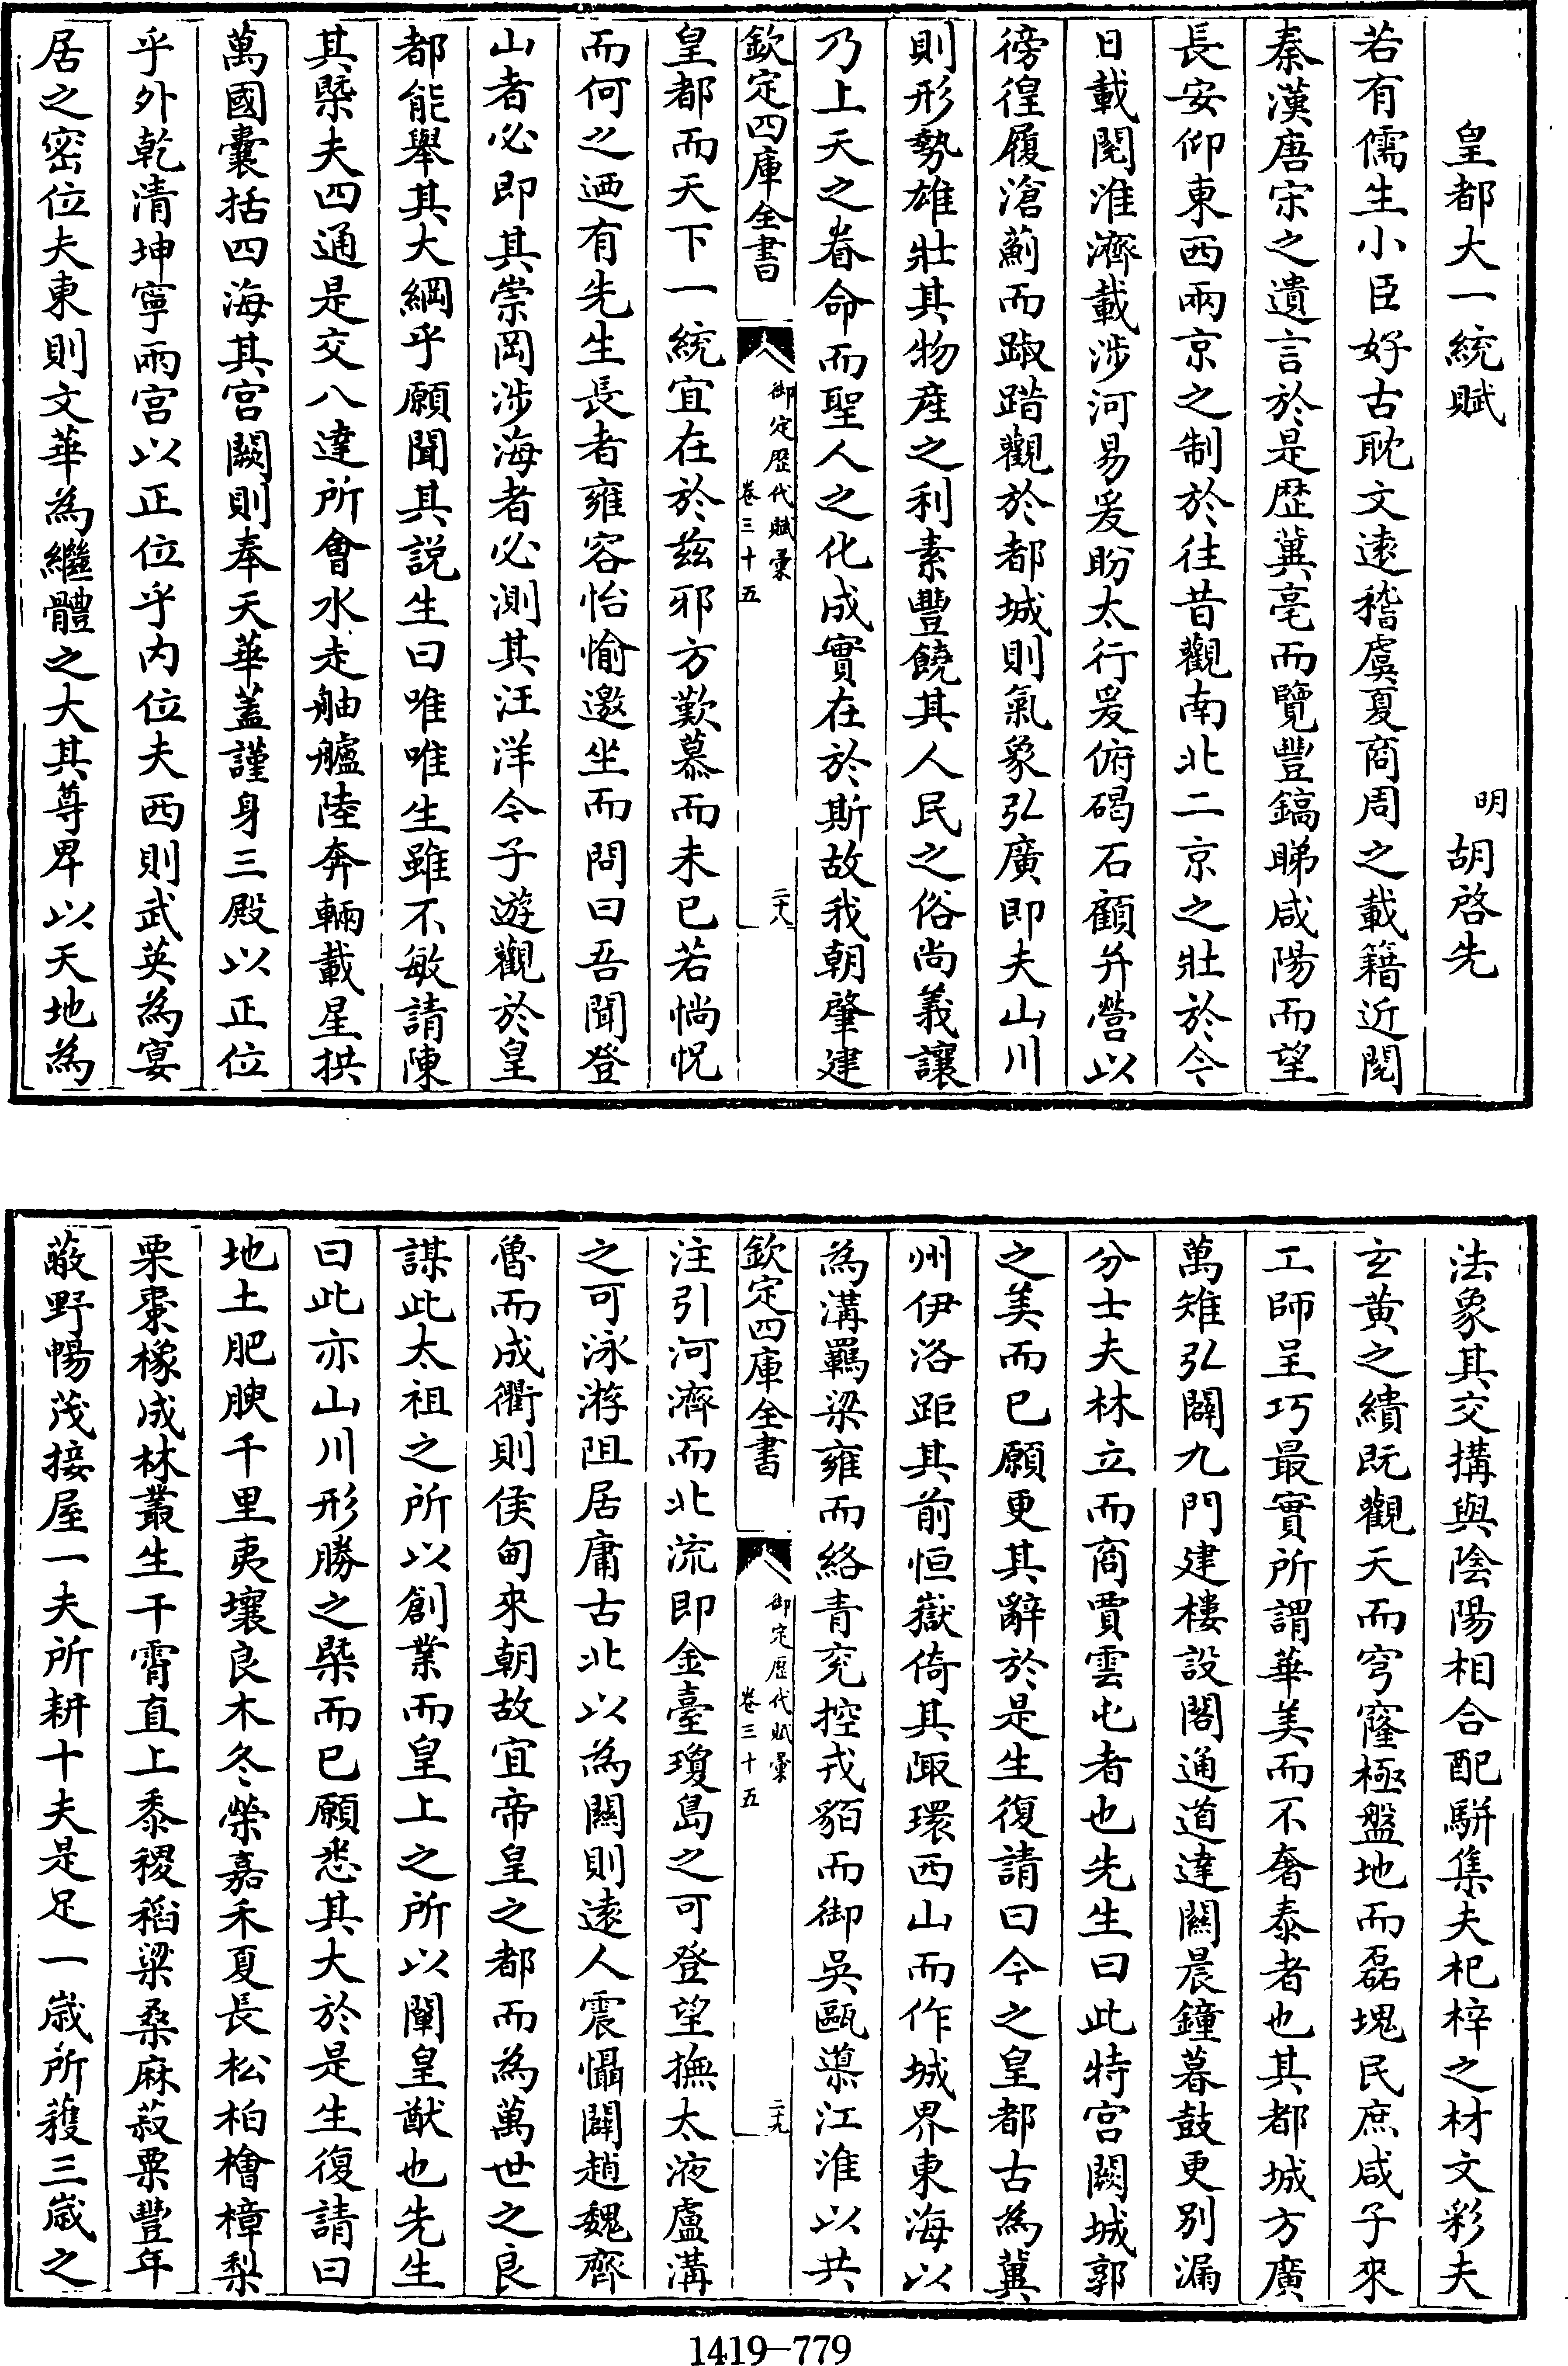 皇都大一統賦
明　胡啓先
若有儒生小臣好古耽文遠稽虞夏商周之載籍近閱
秦漢唐宋之遺言於是歴冀亳而覽豐鎬睇咸陽而望
長安仰東西兩京之制於往昔觀南北二京之壯於今
日載閱淮濟載涉河易爰盼太行爰俯碣石顧弁營以
徬徨履滄薊而踧踖觀於都城則氣象弘廣即夫山川
則形勢雄壯其物産之利素豐饒其人民之俗尚義讓
乃上天之眷命而聖人之化成實在於斯故我朝肇建
欽定四庫全書
御定歴代賦彙
卷三十五
二十八
皇都而天下一統宜在於兹邪方歎慕而未已若惝怳
而何之迺有先生長者雍容怡愉邀坐而問曰吾聞登
山者必即其崇岡涉海者必測其汪洋今子遊觀於皇
都能舉其大綱乎願聞其説生曰唯唯生雖不敏請陳
其槩夫四通是交八達所會水走舳艫陸奔輛載星拱
萬國囊括四海其宫闕則奉天華蓋謹身三殿以正位
乎外乾清坤寧兩宫以正位乎内位夫西則武英為宴
居之密位夫東則文華為繼體之大其尊卑以天地為
法象其交搆與陰陽相合配駢集夫杞梓之材文彩夫
玄黄之繢既觀天而穹窿極盤地而磊塊民庶咸子來
工師呈巧最實所謂華美而不奢泰者也其都城方廣
萬雉弘闢九門建樓設閣通道達闗晨鐘暮鼓更别漏
分士夫林立而商賈雲屯者也先生曰此特宫闕城郭
之美而已願更其辭於是生復請曰今之皇都古為冀
州伊洛距其前恒嶽倚其陬環西山而作城界東海以
為溝羈梁雍而絡青兖控戎貊而御吳甌漕江淮以共
欽定四庫全書
御定歴代賦彙
卷三十五
二十九
注引河濟而北流即金臺瓊島之可登望撫太液盧溝
之可泳游阻居庸古北以為闗則遠人震懾闢趙魏齊
魯而成衢則侯甸來朝故宜帝皇之都而為萬世之良
謀此太祖之所以創業而皇上之所以闡皇猷也先生
曰此亦山川形勝之槩而已願悉其大於是生復請曰
地土肥腴千里夷壤良木冬榮嘉禾夏長松柏檜樟梨
栗棗椽成林叢生干霄直上黍稷稻粱桑麻菽粟豐年
蔽野暢茂接屋一夫所耕十夫是足一歳所穫三歳之
1419—779